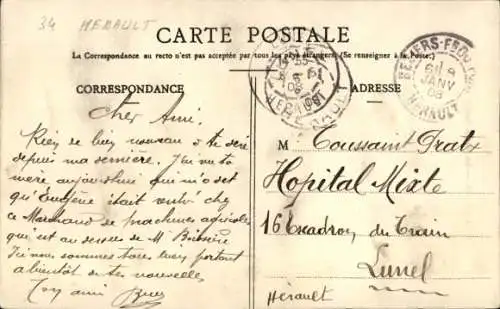 34 HERAULT
CARTE POSTALE
La Correspondance au recto n'est pas acceptée par tous les pays étrangers. (Se renseigner à la Poste.)
CORRESPONDANCE
ADRESSE
BEZIERS
HERAULT
HERAULT
Cher Ami.
Rien de bien nouveau à te dire
depuis ma dernière. J'ai vu ta
mère aujourd'hui qui m'a dit
qu'Eugène était rentré chez
ce Marchand de machines agricoles
qui est au dessus de Mr
nous sommes tous bien portant
à bientôt de tes nouvelles
Ton ami
M Toussaint Pratx
Hopital Mixte
16 Escadron du Train
Lunel
Hérault